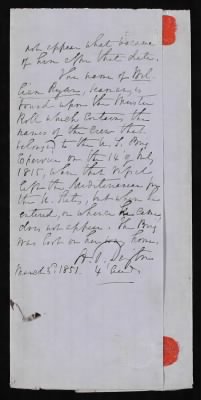 not appear what became
of him after that date.
The name of Wil-
liam Ryan, seaman, is
found upon the Muster
Roll which contains the
names of the Crew that
belonged to the U. S. Brig
Epervier on the 14 of July
1815, when that vessel
left the Mediterranean for
the U. States, but when he
entered, or where he came,
does not appear. The Brig
was lost on her way home.
March 5. 1851. 4 Aud.